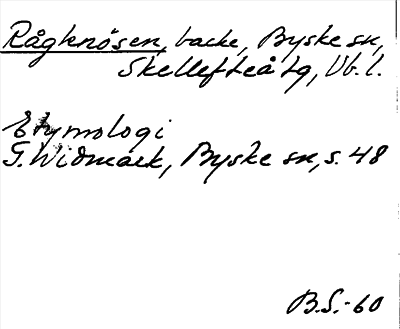 Rågknösen, backe, Byske sn,
Skellefteå tg, Vb. l.
Etymologi
G. Widmark, Byske sn, s. 48
B.S.-60